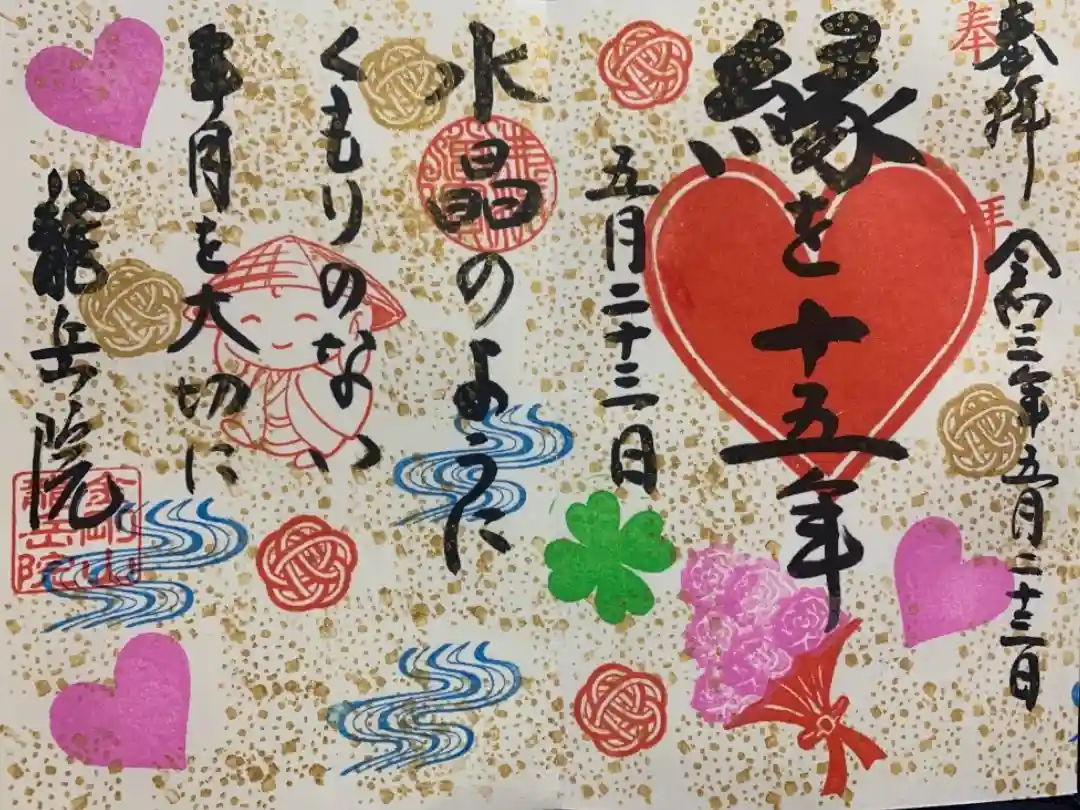 奉拝
奉拝
令和三年五月二十三日
縁を十五年
五月二十三日
水晶のように
くもりのない
年月を大切に
龍岳院
金剛山
龍岳院